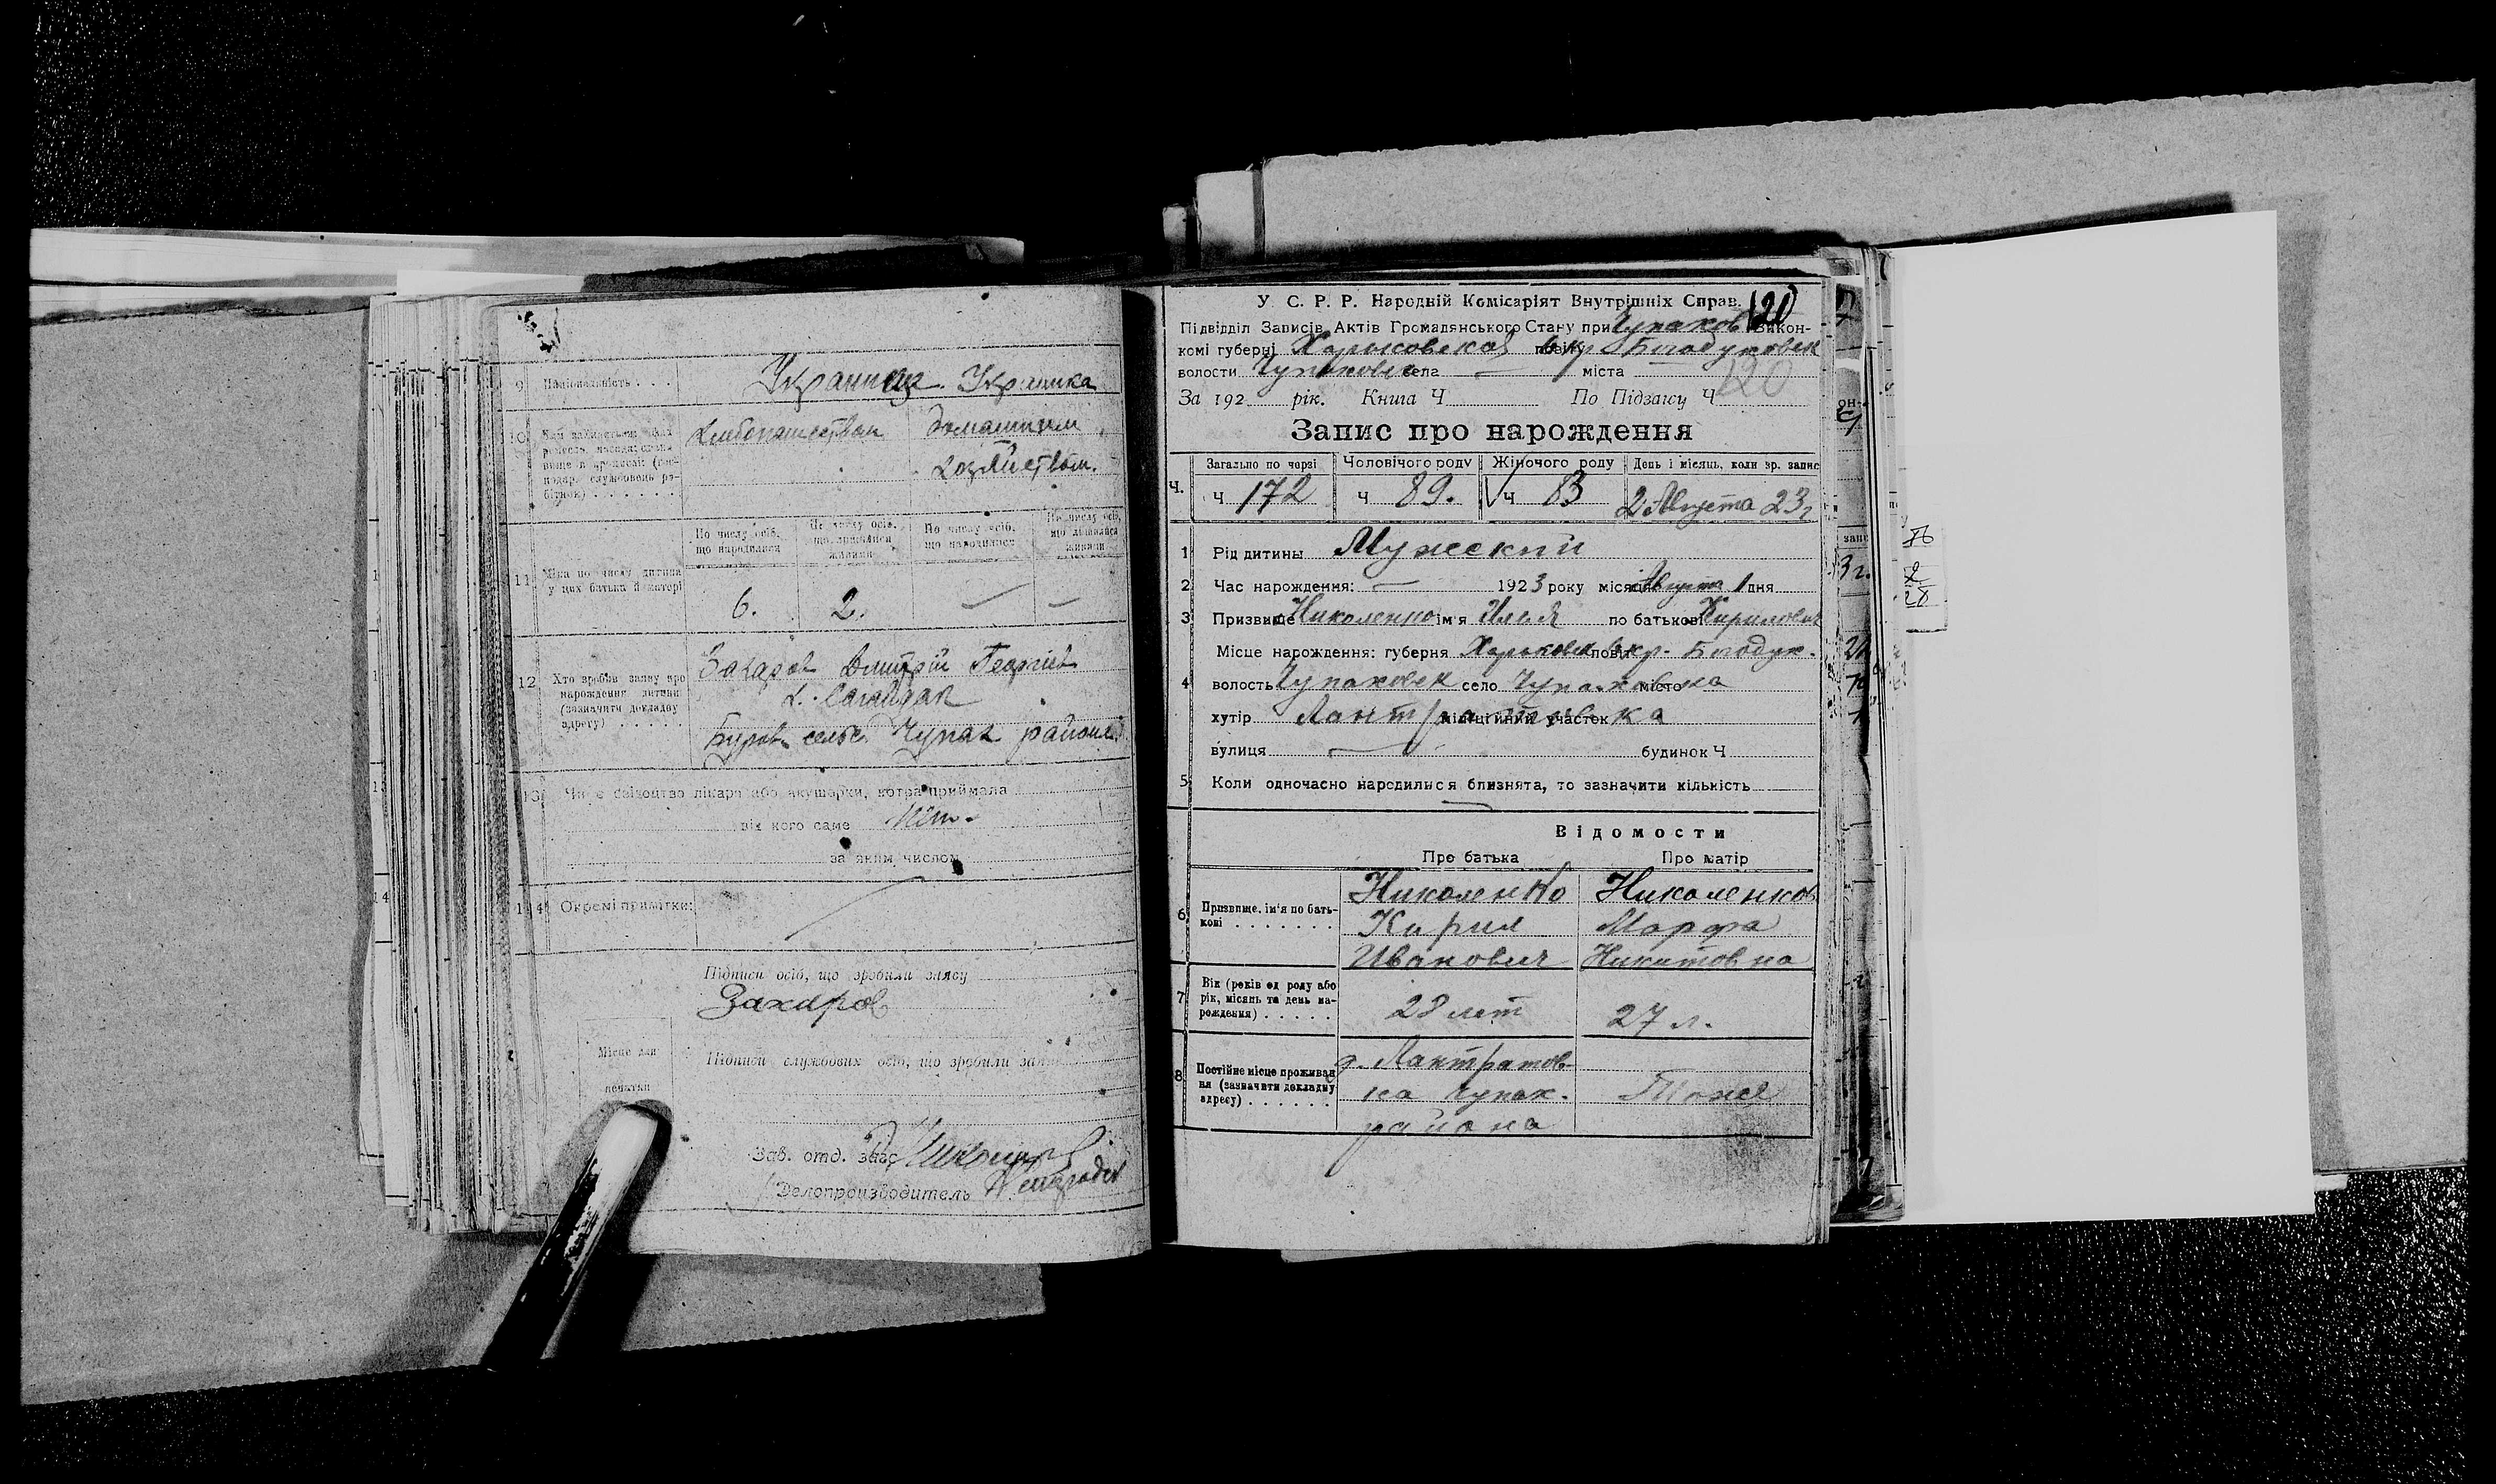 9 Національність . . . Украинец. Украинка
10 Хлебопашеством домашним
хозяйством.
По числу осіб, що народилися
По числу осіб, що лишилися живими
По числу осіб, що народилися
По числу осіб, що лишилися живими
11 Яка по числу дитина у цих батька й матері 6. 2. — —
12 Хто зробив заяву про нарождення дитини (зазначити докладну адресу) . . . . . Захаров Дмитрий Георгиев
х. Сагайдак
сельс. Чупах района
13 Чи є свідоцтво лікаря або акушерки, котра приймала
від кого саме Нет.
за яким числом
14 Окремі примітки:
Підписи осіб, що зробили заяву
Захаров
Місце для
печатки
Підписи службових осіб, що зробили запис
Зав. отд. загс
Делопроизводитель
У. С. Р. Р. Народній Комісаріят Внутрішніх Справ. 120
Підвідділ Записів Актів Громадянського Стану при Чупахов Викон-
комі губерні Харьковской повіту окр Богодуховск
волости Чупаховск села — міста
120
За 192 рік. Книга Ч По Підзапису Ч
Запис про нарождення
Загально по черзі Чоловічого роду Жіночого роду День і місяць, коли зр. запис
Ч. ч 172 ч 89. ч 83 2 Августа 23 г
1 Рід дитины Мужский
2 Час нарождення: — 1923 року місяця Августа 1 дня
3 Призвище Николенко ім'я Илья по батькові Кирилович
Місце нарождення: губерня Харьковск повіт окр. Богодух.
4 волость Чупаховск село Чупаховка місто
хутір Лантратовка міліційний участок
вулиця — будинок Ч
5 Коли одночасно народилися близнята, то зазначити кількість
—
Відомости
Про батька Про матір
6 Призвище, ім'я по батькові . . . . . . . Николенко Николенков
Кирил Марфа
Иванович Никитовна
7 Вік (років од роду або рік, місяць та день нарождення) . . . . . 28 лет 27 л.
8 Постійне місце проживання (зазначити докладну адресу) . . . . . . д. Лантратов-
ка Чупах. Тоже
района